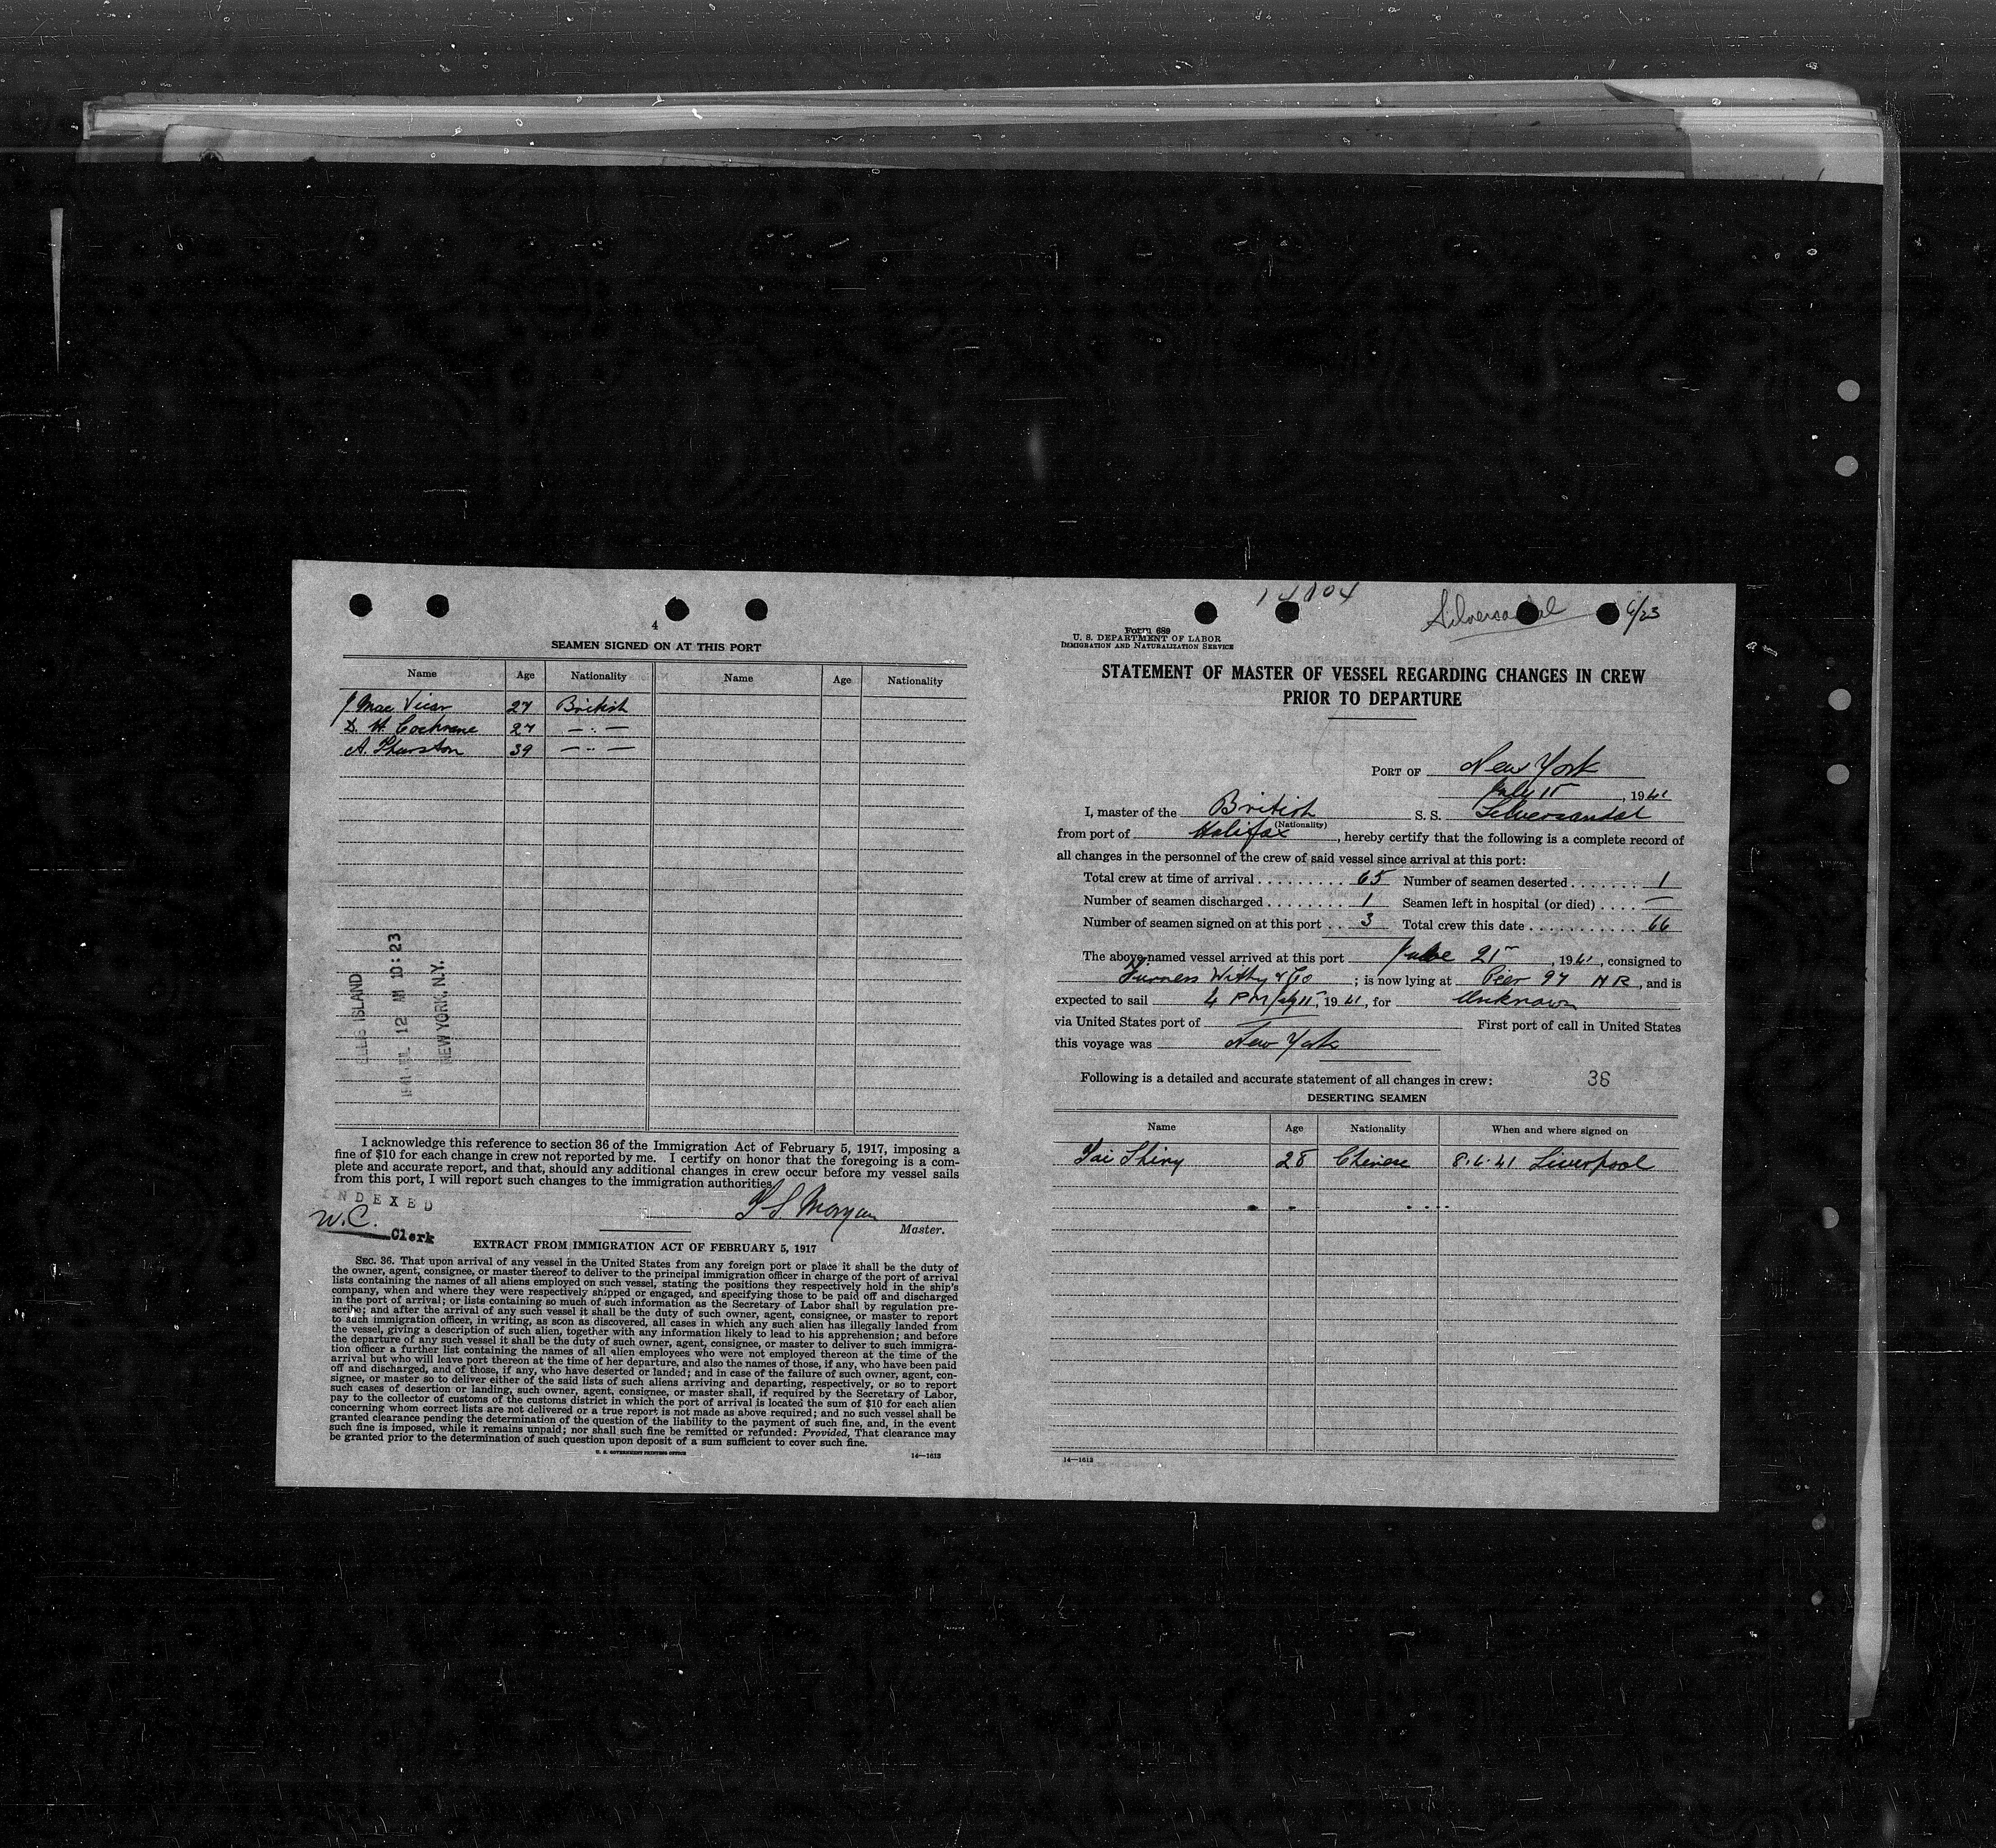 4
SEAMEN SIGNED ON AT THIS PORT
Name Age Nationality Name Age Nationality
J. Mac Vicar 27 British
D. H. Cochrane 27 — " —
A. Thurston 39 — " —
ELLIS ISLAND
1941 JUL 12 AM 10:23
NEW YORK, N.Y.
I acknowledge this reference to section 36 of the Immigration Act of February 5, 1917, imposing a
fine of $10 for each change in crew not reported by me. I certify on honor that the foregoing is a com-
plete and accurate report, and that, should any additional changes in crew occur before my vessel sails
from this port, I will report such changes to the immigration authorities.
INDEXED
W.C.
Clerk
Morgan
Master.
EXTRACT FROM IMMIGRATION ACT OF FEBRUARY 5, 1917
SEC. 36. That upon arrival of any vessel in the United States from any foreign port or place it shall be the duty of
the owner, agent, consignee, or master thereof to deliver to the principal immigration officer in charge of the port of arrival
lists containing the names of all aliens employed on such vessel, stating the positions they respectively hold in the ship's
company, when and where they were respectively shipped or engaged, and specifying those to be paid off and discharged
in the port of arrival; or lists containing so much of such information as the Secretary of Labor shall by regulation pre-
scribe; and after the arrival of any such vessel it shall be the duty of such owner, agent, consignee, or master to report
to such immigration officer, in writing, as soon as discovered, all cases in which any such alien has illegally landed from
the vessel, giving a description of such alien, together with any information likely to lead to his apprehension; and before
the departure of any such vessel it shall be the duty of such owner, agent, consignee, or master to deliver to such immigra-
tion officer a further list containing the names of all alien employees who were not employed thereon at the time of the
arrival but who will leave port thereon at the time of her departure, and also the names of those, if any, who have been paid
off and discharged, and of those, if any, who have deserted or landed; and in case of the failure of such owner, agent, con-
signee, or master so to deliver either of the said lists of such aliens arriving and departing, respectively, or so to report
such cases of desertion or landing, such owner, agent, consignee, or master shall, if required by the Secretary of Labor,
pay to the collector of customs of the customs district in which the port of arrival is located the sum of $10 for each alien
concerning whom correct lists are not delivered or a true report is not made as above required; and no such vessel shall be
granted clearance pending the determination of the question of the liability to the payment of such fine, and, in the event
such fine is imposed, while it remains unpaid; nor shall such fine be remitted or refunded: Provided, That clearance may
be granted prior to the determination of such question upon deposit of a sum sufficient to cover such fine.
U. S. GOVERNMENT PRINTING OFFICE 14—1613
Silversandal 6/23
Form 689
U. S. DEPARTMENT OF LABOR
IMMIGRATION AND NATURALIZATION SERVICE
STATEMENT OF MASTER OF VESSEL REGARDING CHANGES IN CREW
PRIOR TO DEPARTURE
PORT OF New York
July 11, 1941
I, master of the British S. S. Silversandal
(Nationality)
from port of Halifax, hereby certify that the following is a complete record of
all changes in the personnel of the crew of said vessel since arrival at this port:
Total crew at time of arrival 65 Number of seamen deserted 1
Number of seamen discharged 1 Seamen left in hospital (or died) —
Number of seamen signed on at this port 3 Total crew this date 66
The above-named vessel arrived at this port June 21, 1941, consigned to
Furness Withy & Co; is now lying at Pier 97 N R, and is
expected to sail 4 PM July 11, 1941, for Unknown
via United States port of — First port of call in United States
this voyage was New York
Following is a detailed and accurate statement of all changes in crew: 36
DESERTING SEAMEN
Name Age Nationality When and where signed on
Tai Shing 28 Chinese 8.6.41 Liverpool
14—1613